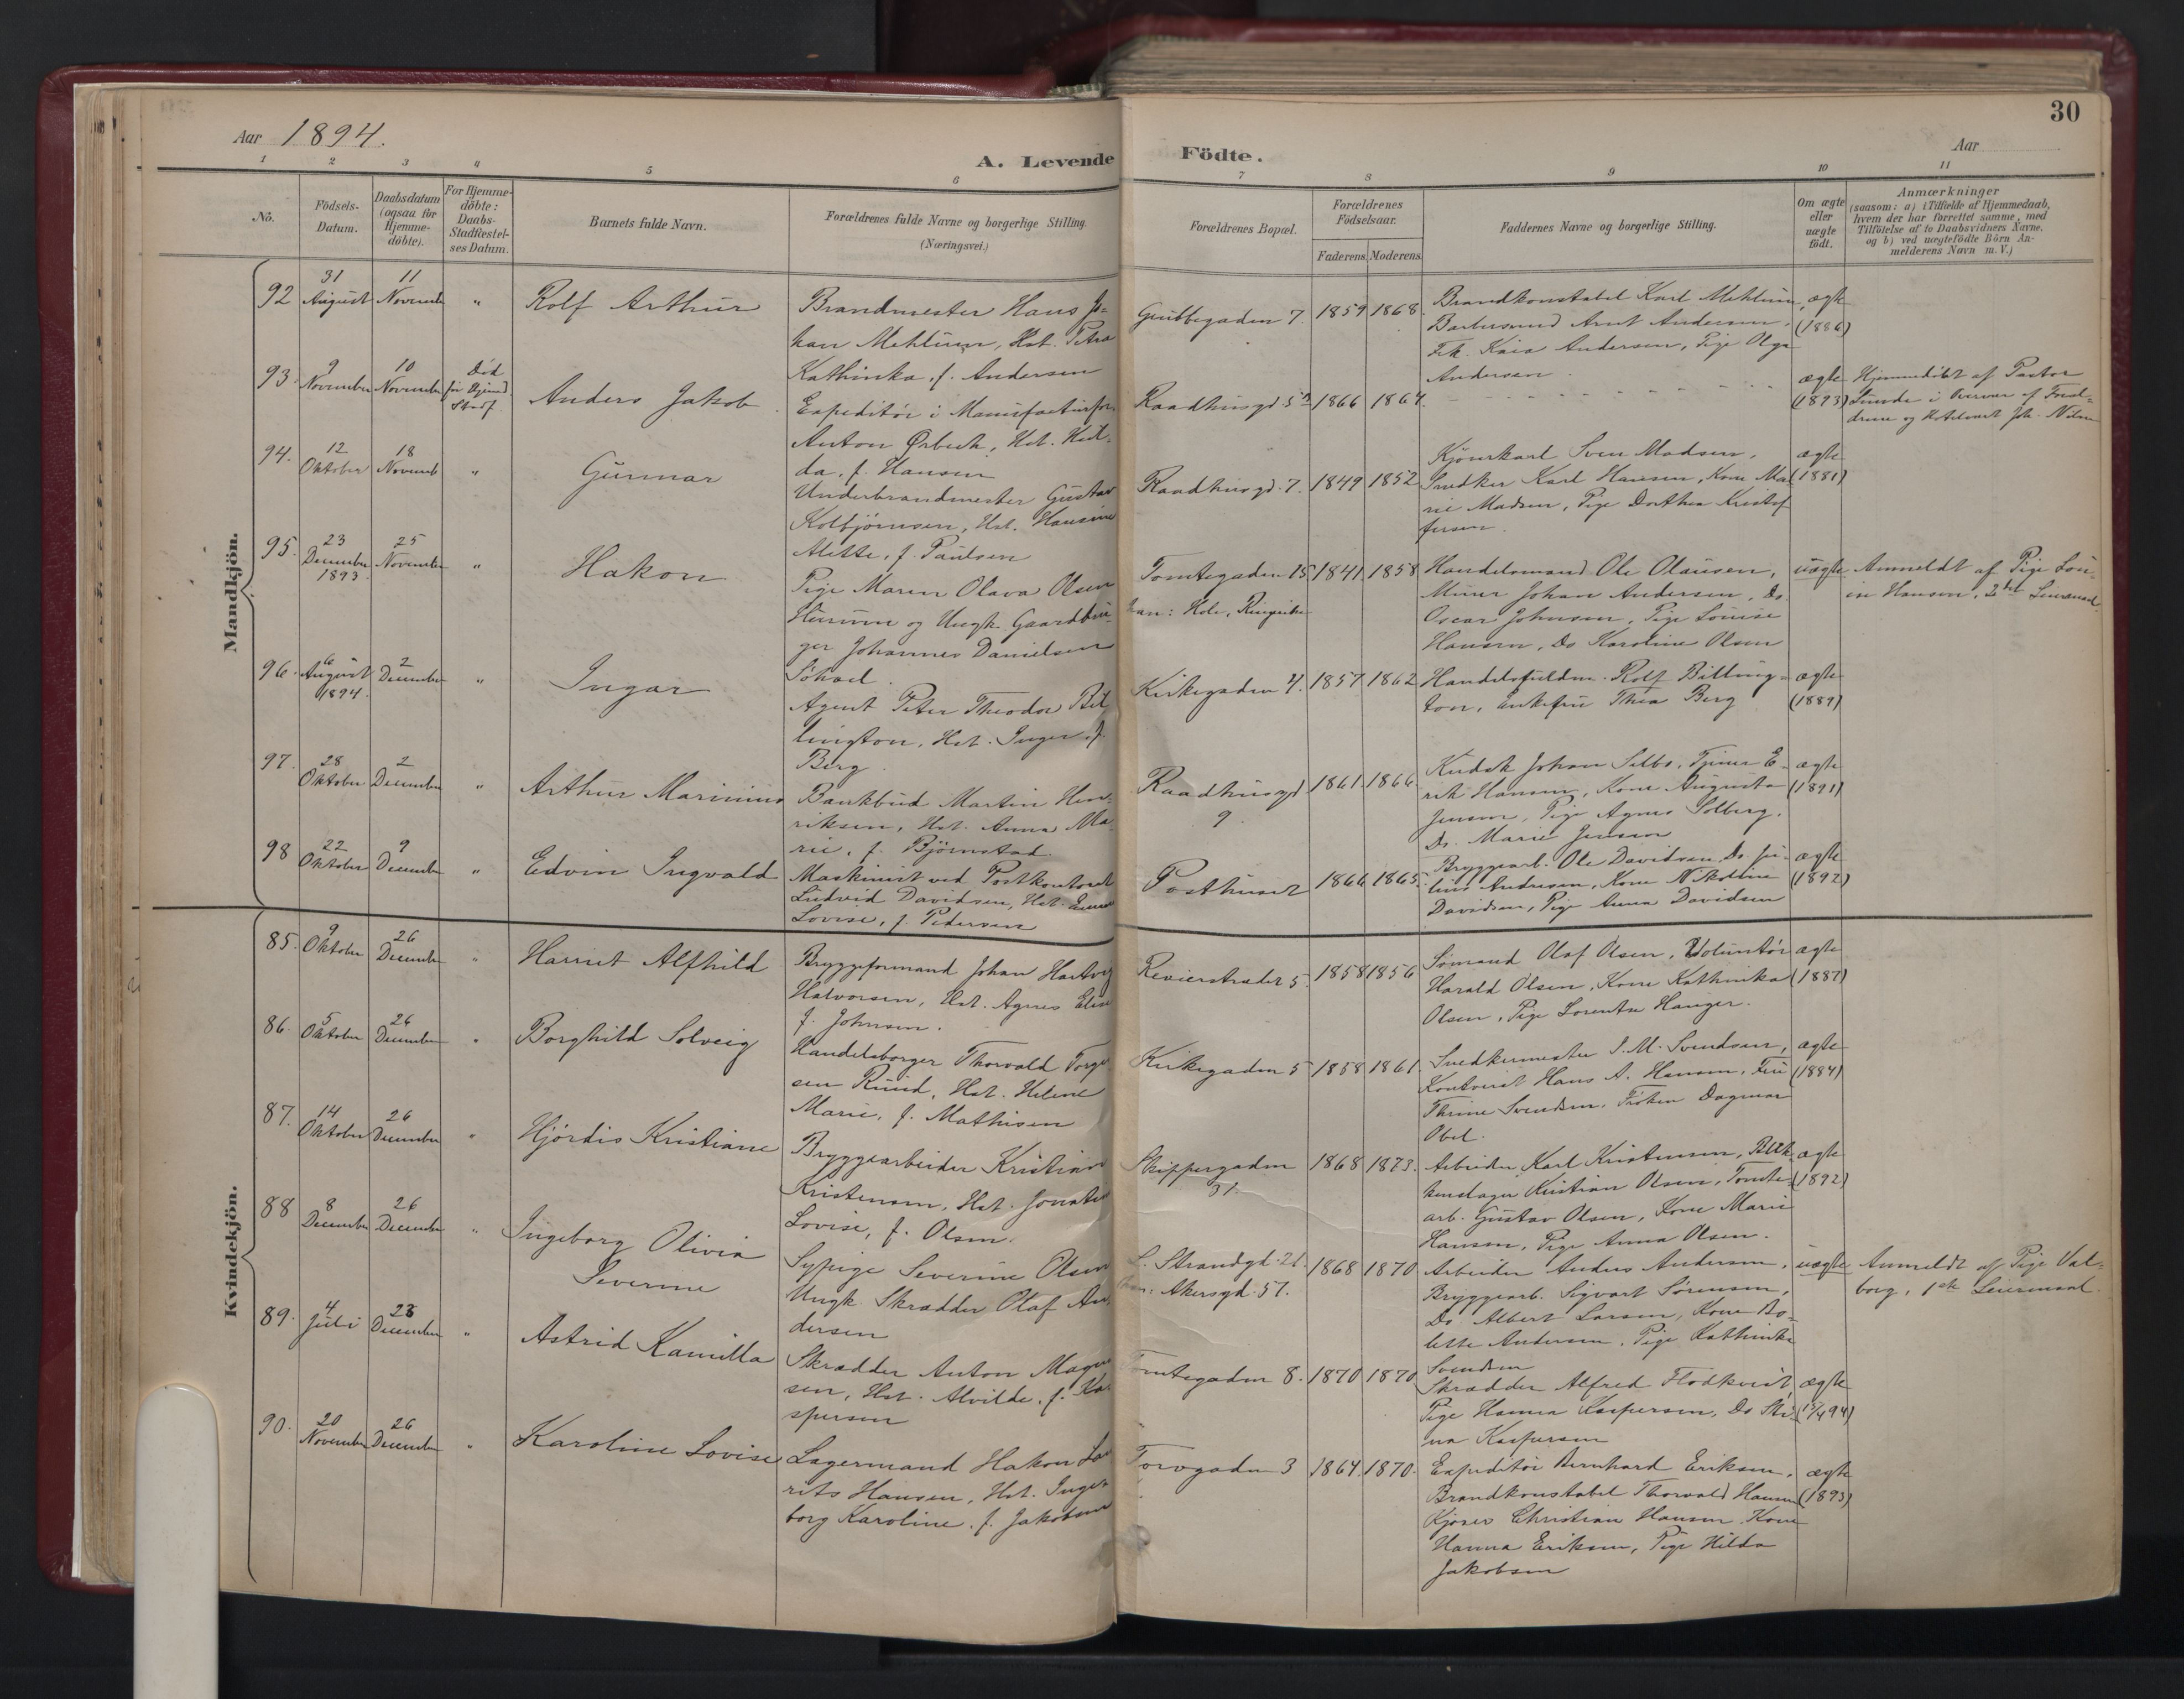 30
Aar 1894.
A. Levende Födte.
Aar
1 2 3 4 5 6 7 8 9 10 11
No.
Födsels-Datum.
Daabsdatum (ogsaa for Hjemme-döbte).
For Hjemme-döbte: Daabs-Stadfæstel-ses Datum.
Barnets fulde Navn.
Forældrenes fulde Navne og borgerlige Stilling. (Næringsvei.)
Forældrenes Bopæl.
Forældrenes Födselsaar.
Faderens. Moderens.
Faddernes Navne og borgerlige Stilling.
Om ægte eller uægte födt.
Anmærkninger
(saasom: a) i Tilfælde af Hjemmedaab,
hvem der har forrettet samme, med
Tilföielse af to Daabsvidners Navne,
og b) ved uægtefödte Börn An-
melderens Navn m. V.)
Mandkjön.
92
31 August
11 Novemb
"
Rolf Arthur
Brandmester Hans Jo-
han Mehlum, Hst. Petra
Kathinka, f. Andersen
Grubbegaden 7.
1859 1868
Brandkonstabel Karl Mehlum,
Barbersvend Arnt Andersen,
Frk. Kaia Andersen, Pige Olga
Andersen
ægte
(1886)
93.
9 November
10 November
Död
før Hjemd
Stadf.
Anders Jakob
Expeditør i Manufacturfor.
Anton Ørbech, Hst. Hul-
da, f. Hansen
Raadhusgd. 5
1866 1864
ægte
(1893)
Hjemmedöbt af Pastor
i Overvær af Foræl-
drene og Joh. Nilsen
94.
12 Oktober
18 Novemb
"
Gunnar
Underbrandmester Gustav
Kolbjörnsen, Hst. Hansine
Alette, f. Paulsen
Raadhusgd. 7.
1849 1852
Kjörekarl Sven Madsen,
Snedker Karl Hansen, Kone Ma-
rie Madsen, Pige Dorthea Kristof
fersen.
ægte
(1881)
95.
23 December 1893.
25 November
"
Hakon
Pige Maren Olava Olsen
og Ungk. Gaardbru-
ger Johannes Danielsen
Tomtegaden 15
han: Hole, Ringerike
1841 1858
Handelsmand Ole Olausen,
Murer Johan Andersen, Do
Oscar Johnsen, Pige Louise
Hansen, Do Karoline Olsen
uægte
Anmeldt af Pige Lou-
ise Hansen, 2det Leiermaal.
96.
6 August 1894.
2 December
"
Ingar
Agent Peter Theodor Bil
lington, Hst. Inger, f.
Berg
Kirkegaden 4.
1857 1862
Handelsfuldm. Rolf Billing-
ton, Enkefru Thea Berg
ægte
(1889)
97.
28 Oktober
2 December
"
Arthur Marinius
Bankbud Martin Hen-
riksen, Hst. Anna Ma-
rie, f. Björnstad.
Raadhusgd
9.
1861 1866
Kudsk Johan Tjener E-
rik Hansen, Kone Augusta
Jensen, Pige Agnes Solberg,
Do. Marie Jensen
ægte
(1891)
98
22 Oktober
9 December
"
Edvin Ingvald
Maskinist ved Postkontoret
Ludvid Davidsen, Hst. Emma
Lovise, f. Pedersen
Posthuset
1866 1865
Bryggearb. Ole Davidsen, Do. Ju-
lius Andersen, Kone Nikoline
Davidsen, Pige Anna Davidsen
ægte
(1892)
Kvindekjön.
85.
9 Oktober
26 December
"
Harriet Alfhild
Bryggeformand Johan Hartvig
Halvorsen, Hst. Agnes Elise
f. Johnsen.
Revierstrædet 5.
1858 1856
Sömand Olaf Olsen, Voluntör
Harald Olsen, Kone Kathinka
Olsen, Pige Lorentse Hanger.
ægte
(1887)
86.
5 Oktober
26 December
"
Borghild Solveig
Handelsborger Thorvald Torge
sen Ruud, Hst. Helene
Marie, f. Mathisen
Kirkegaden 5
1858 1861
Snedkermester I. M. Svendsen,
Kontorist Hans A. Hansen, Fru
Thrine Svendsen, Fröken Dagmar
Obel.
ægte
(1884)
87.
14 Oktober
26 December
"
Hjördis Kristiane
Bryggearbeider Kristian
Kristensen, Hst. Jonette
Lovise, f. Olsen.
Skippergaden
31.
1868 1873.
Arbeider Karl Kristensen, Blik
kenslager Kristian Olsen, Tomte
arb. Gustav Olsen, Kone Marie
Hansen, Pige Anna Olsen.
ægte
(1892)
88
8 December
26 December
"
Ingeborg Olivia
Severine
Sypige Severine Olsen
Ungk. Skrædder Olaf An-
dersen
L. Strandgd. 21.
han: Akersgd. 57.
1868 1870
Arbeider Anders Andersen,
Bryggearb. Sigvart Sörensen,
Do Albert Larsen, Kone Bo-
lette Andersen, Pige Kathinka
Svendsen
uægte
Anmeldt af Pige Val-
borg, 1ste Leiermaal.
89.
4 Juli
26 December
"
Astrid Kamilla
Skrædder Anton Magnu
sen, Hst. Alvilde, f. Ka
spersen
Tomtegaden 8.
1870 1870
Skrædder Alfred Flodkvist,
Pige Hanna Kaspersen, Do Sti-
na Kaspersen
ægte
90.
20 November
26 December
"
Karoline Lovise
Lagermand Hakon Lau
rits Hansen, Hst. Inge-
borg Karoline, f. Jakobsen
Torvgaden 3
1864 1870.
Expeditör Bernhard Eriksen,
Brandkonstabel Thorvald Hansen
Kjörer Christian Hansen, Kone
Hanna Eriksen, Pige Hilda
Jakobsen
ægte
(1893)